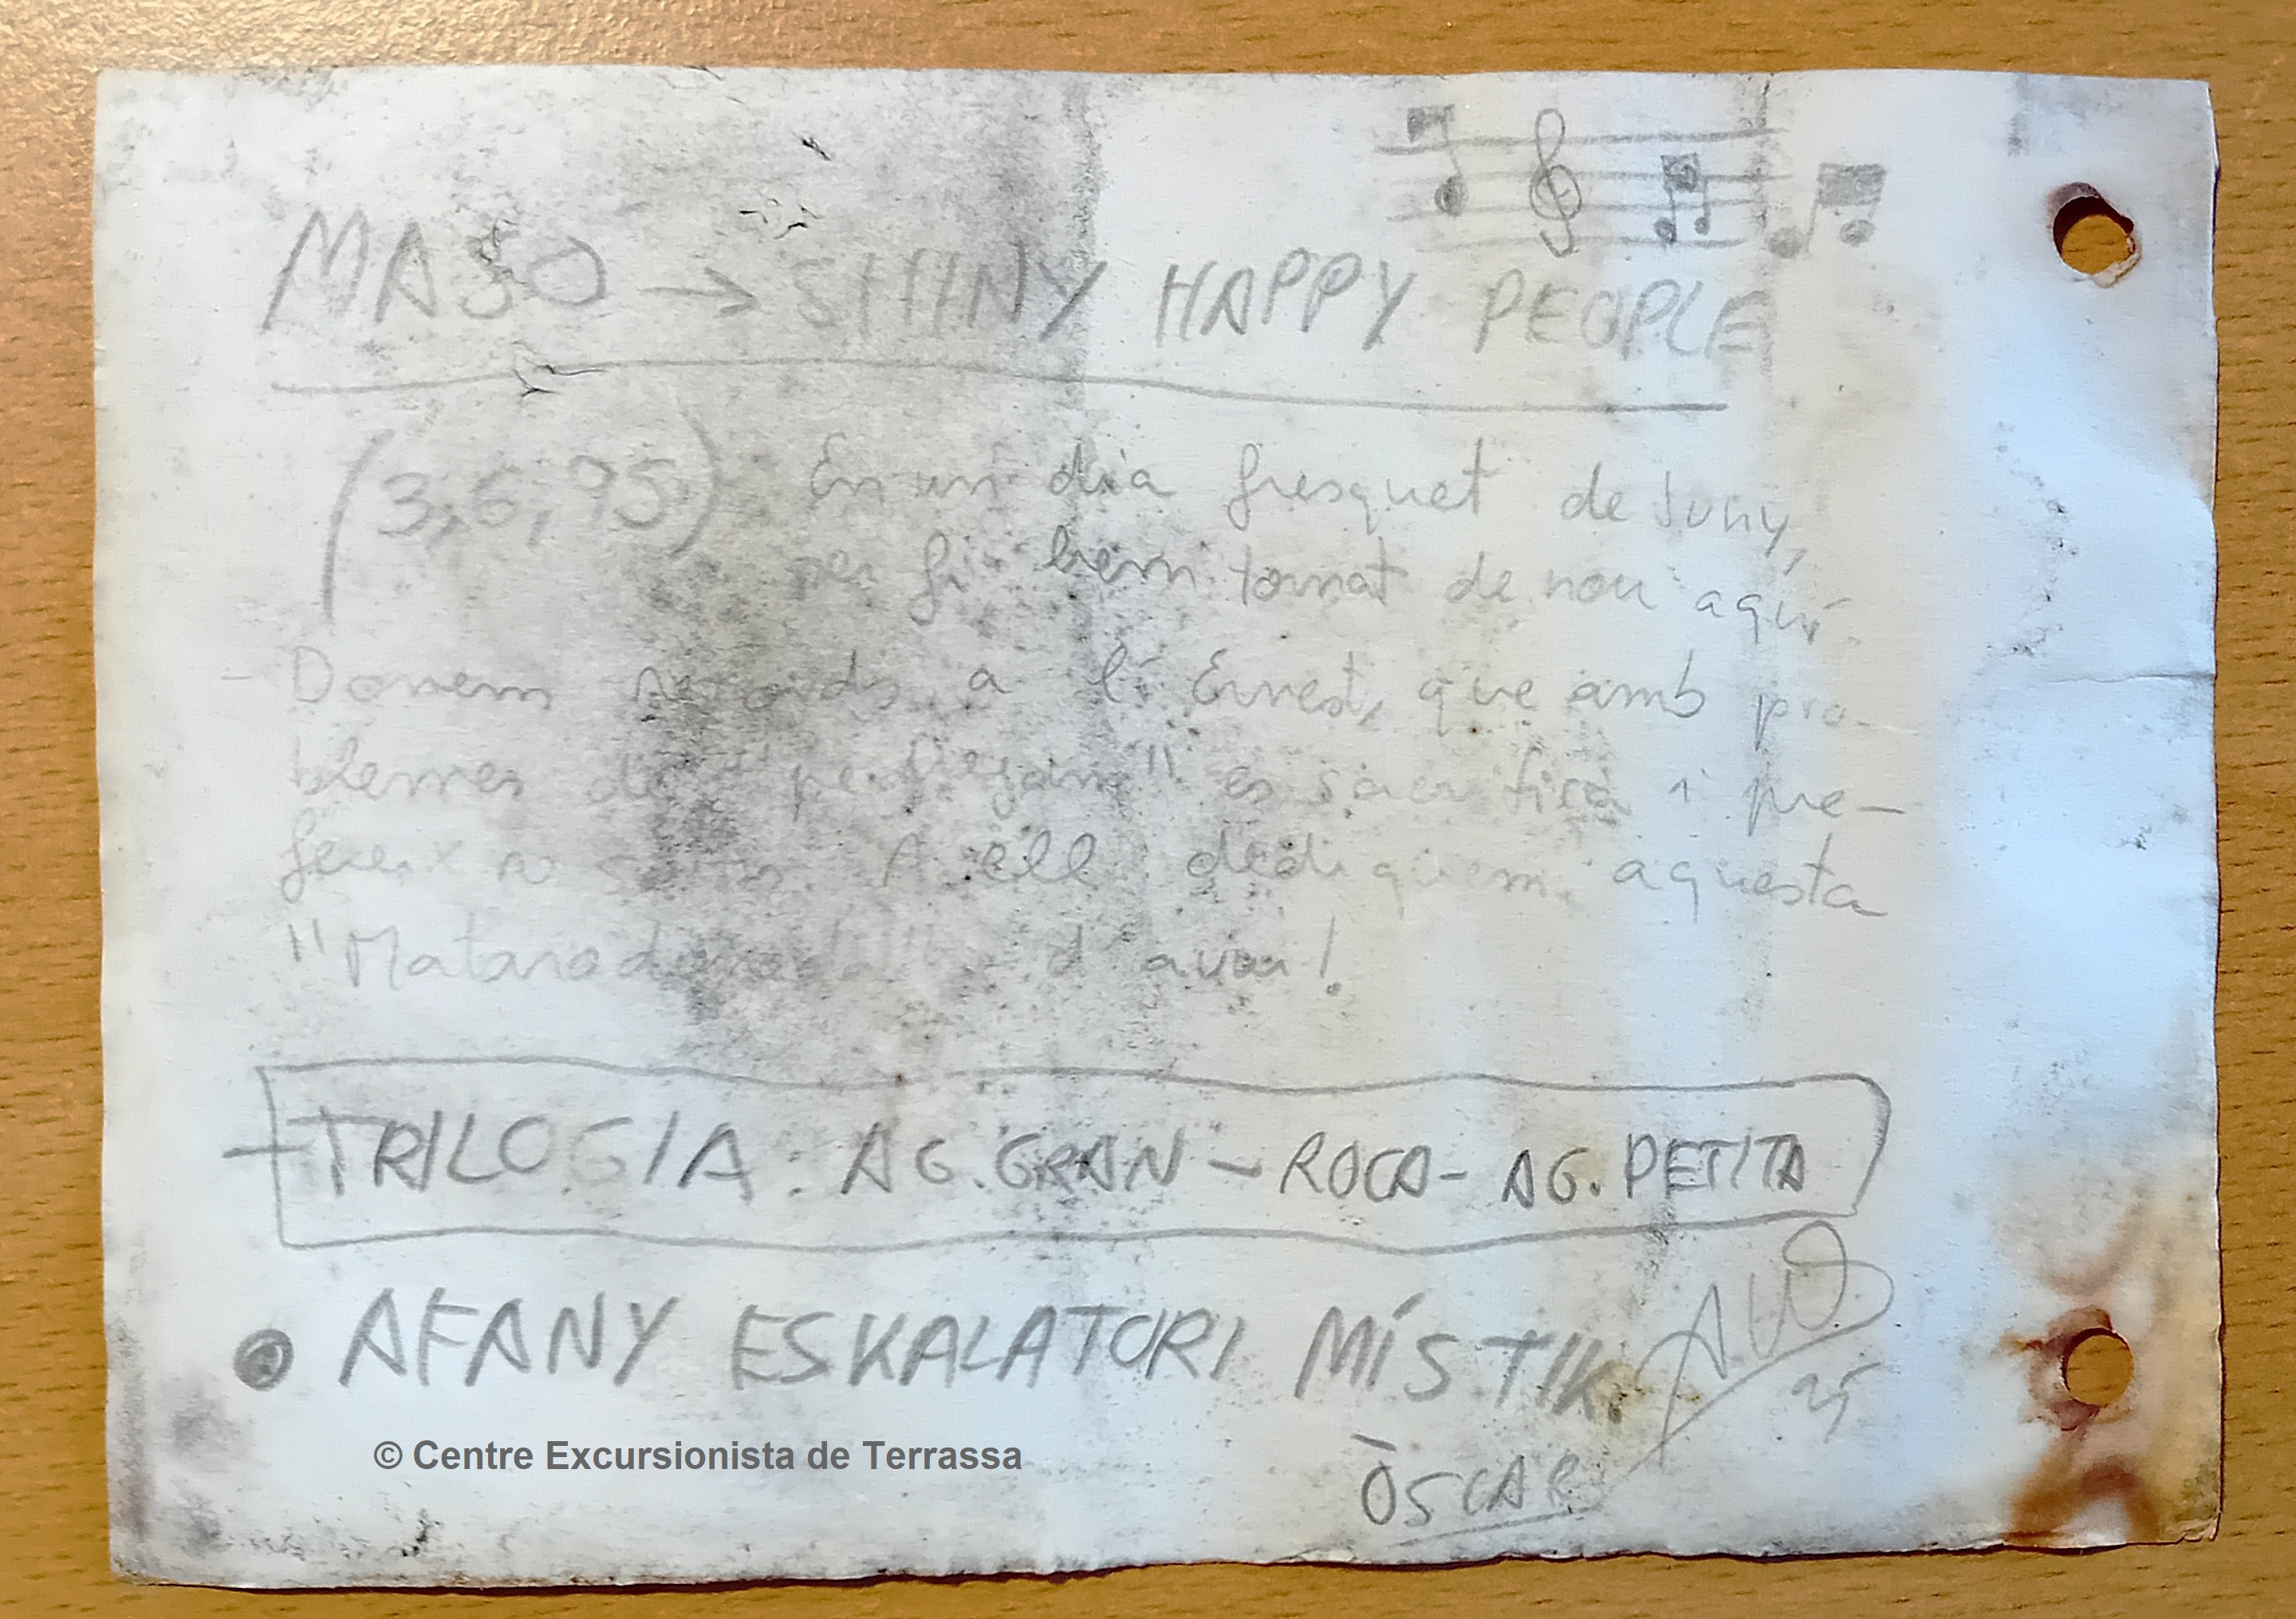 MASO → SHINY HAPPY PEOPLE
(3,6,95) En un dia fresquet de Juny,
per fi hem tornat de nou aquí.
- Donem records a l'Ernest, que amb pro-
blemes de es sacrifica i pre-
fereix no sortir. A ell dediquem aquesta
d'avui!
TRILOGIA: AG. GRAN - ROCA - AG. PETITA
AFANY ESKALATORI MÍSTIK.
95
ÒSCAR
© Centre Excursionista de Terrassa